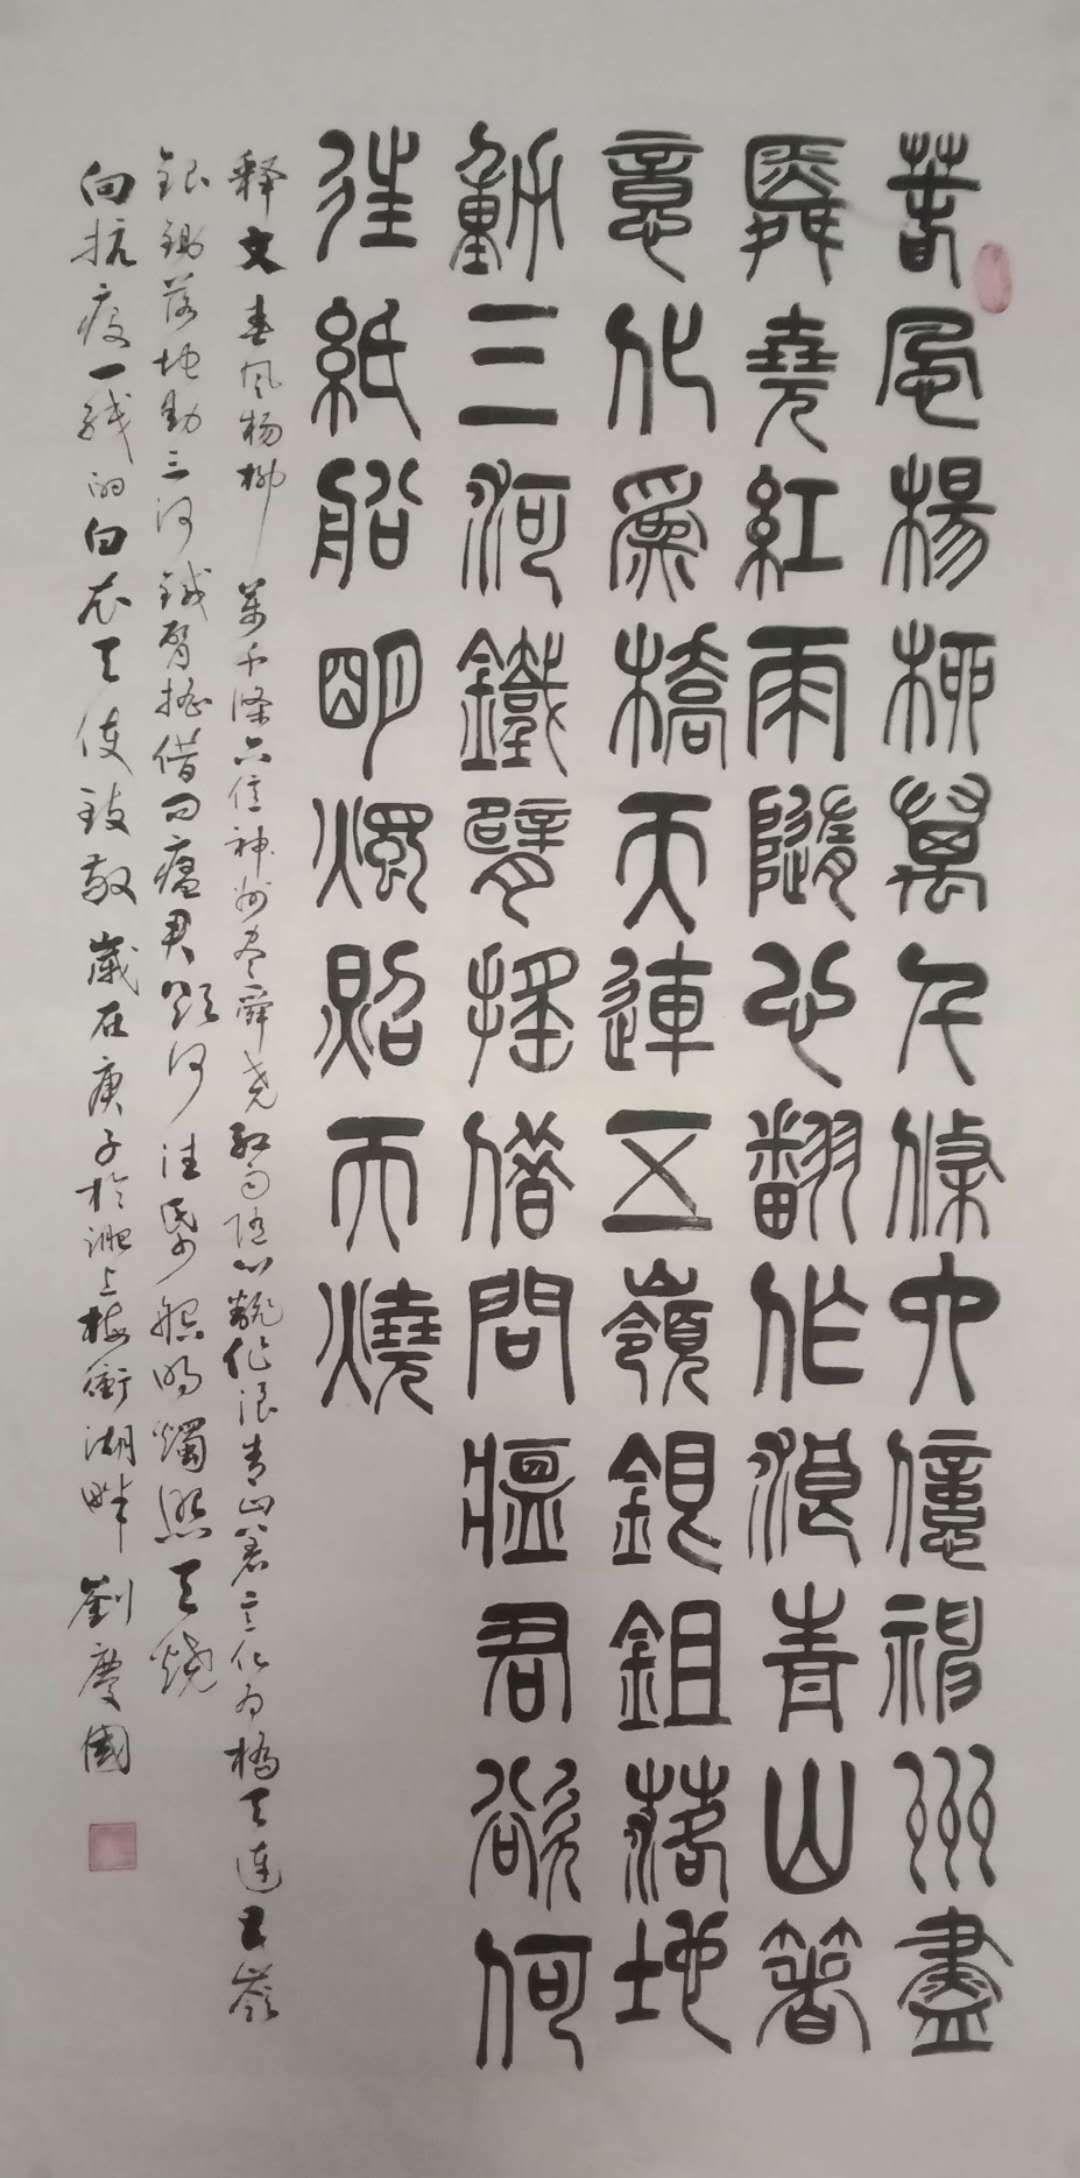 春風楊柳萬千條六億神州盡
舜堯紅雨隨心翻作浪青山著
意化為橋天連五嶺銀鋤落地
動三河鐵臂搖借問瘟君欲何
往紙船明燭照天燒
释文春风杨柳萬千條六億神州尽舜尧紅雨随心翻作浪青山著意化为橋天連五嶺
銀鋤落地動三河鐵臂搖借问瘟君欲何往紙船明燭照天燒
向抗疫一线的白衣天使致敬歲在庚子於淝上梅衝湖畔劉慶國